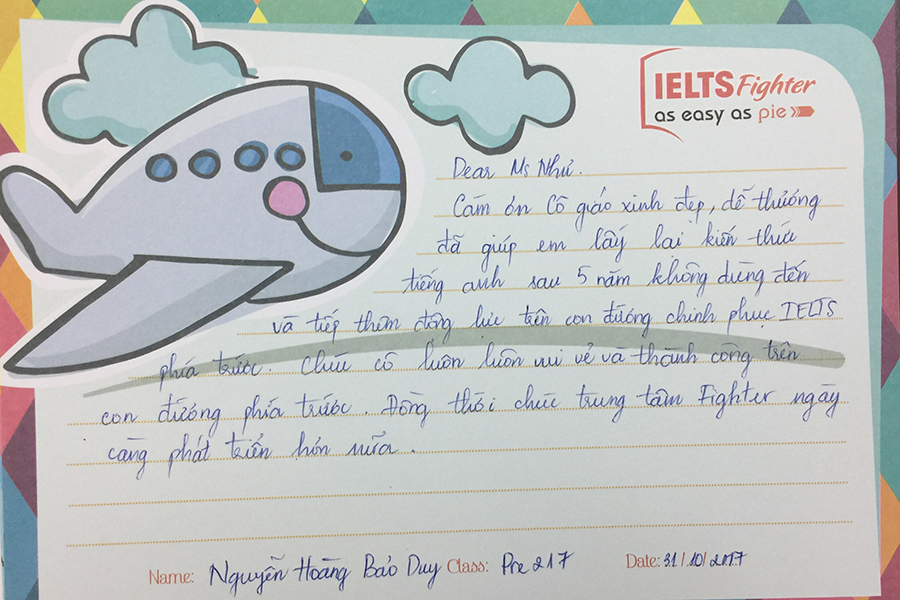 IELTS Fighter
as easy as pie
Dear Ms Như.
Cảm ơn Cô giáo xinh đẹp, dễ thương
đã giúp em lấy lại kiến thức
tiếng anh sau 5 năm không dùng đến
và tiếp thêm động lực trên con đường chinh phục IELTS
phía trước. Chúc cô luôn luôn vui vẻ và thành công trên
con đường phía trước. Đồng thời chúc trung tâm Fighter ngày
càng phát triển hơn nữa.
Name: Nguyễn Hoàng Bảo Duy Class: Pre 217 Date: 31/10/2017